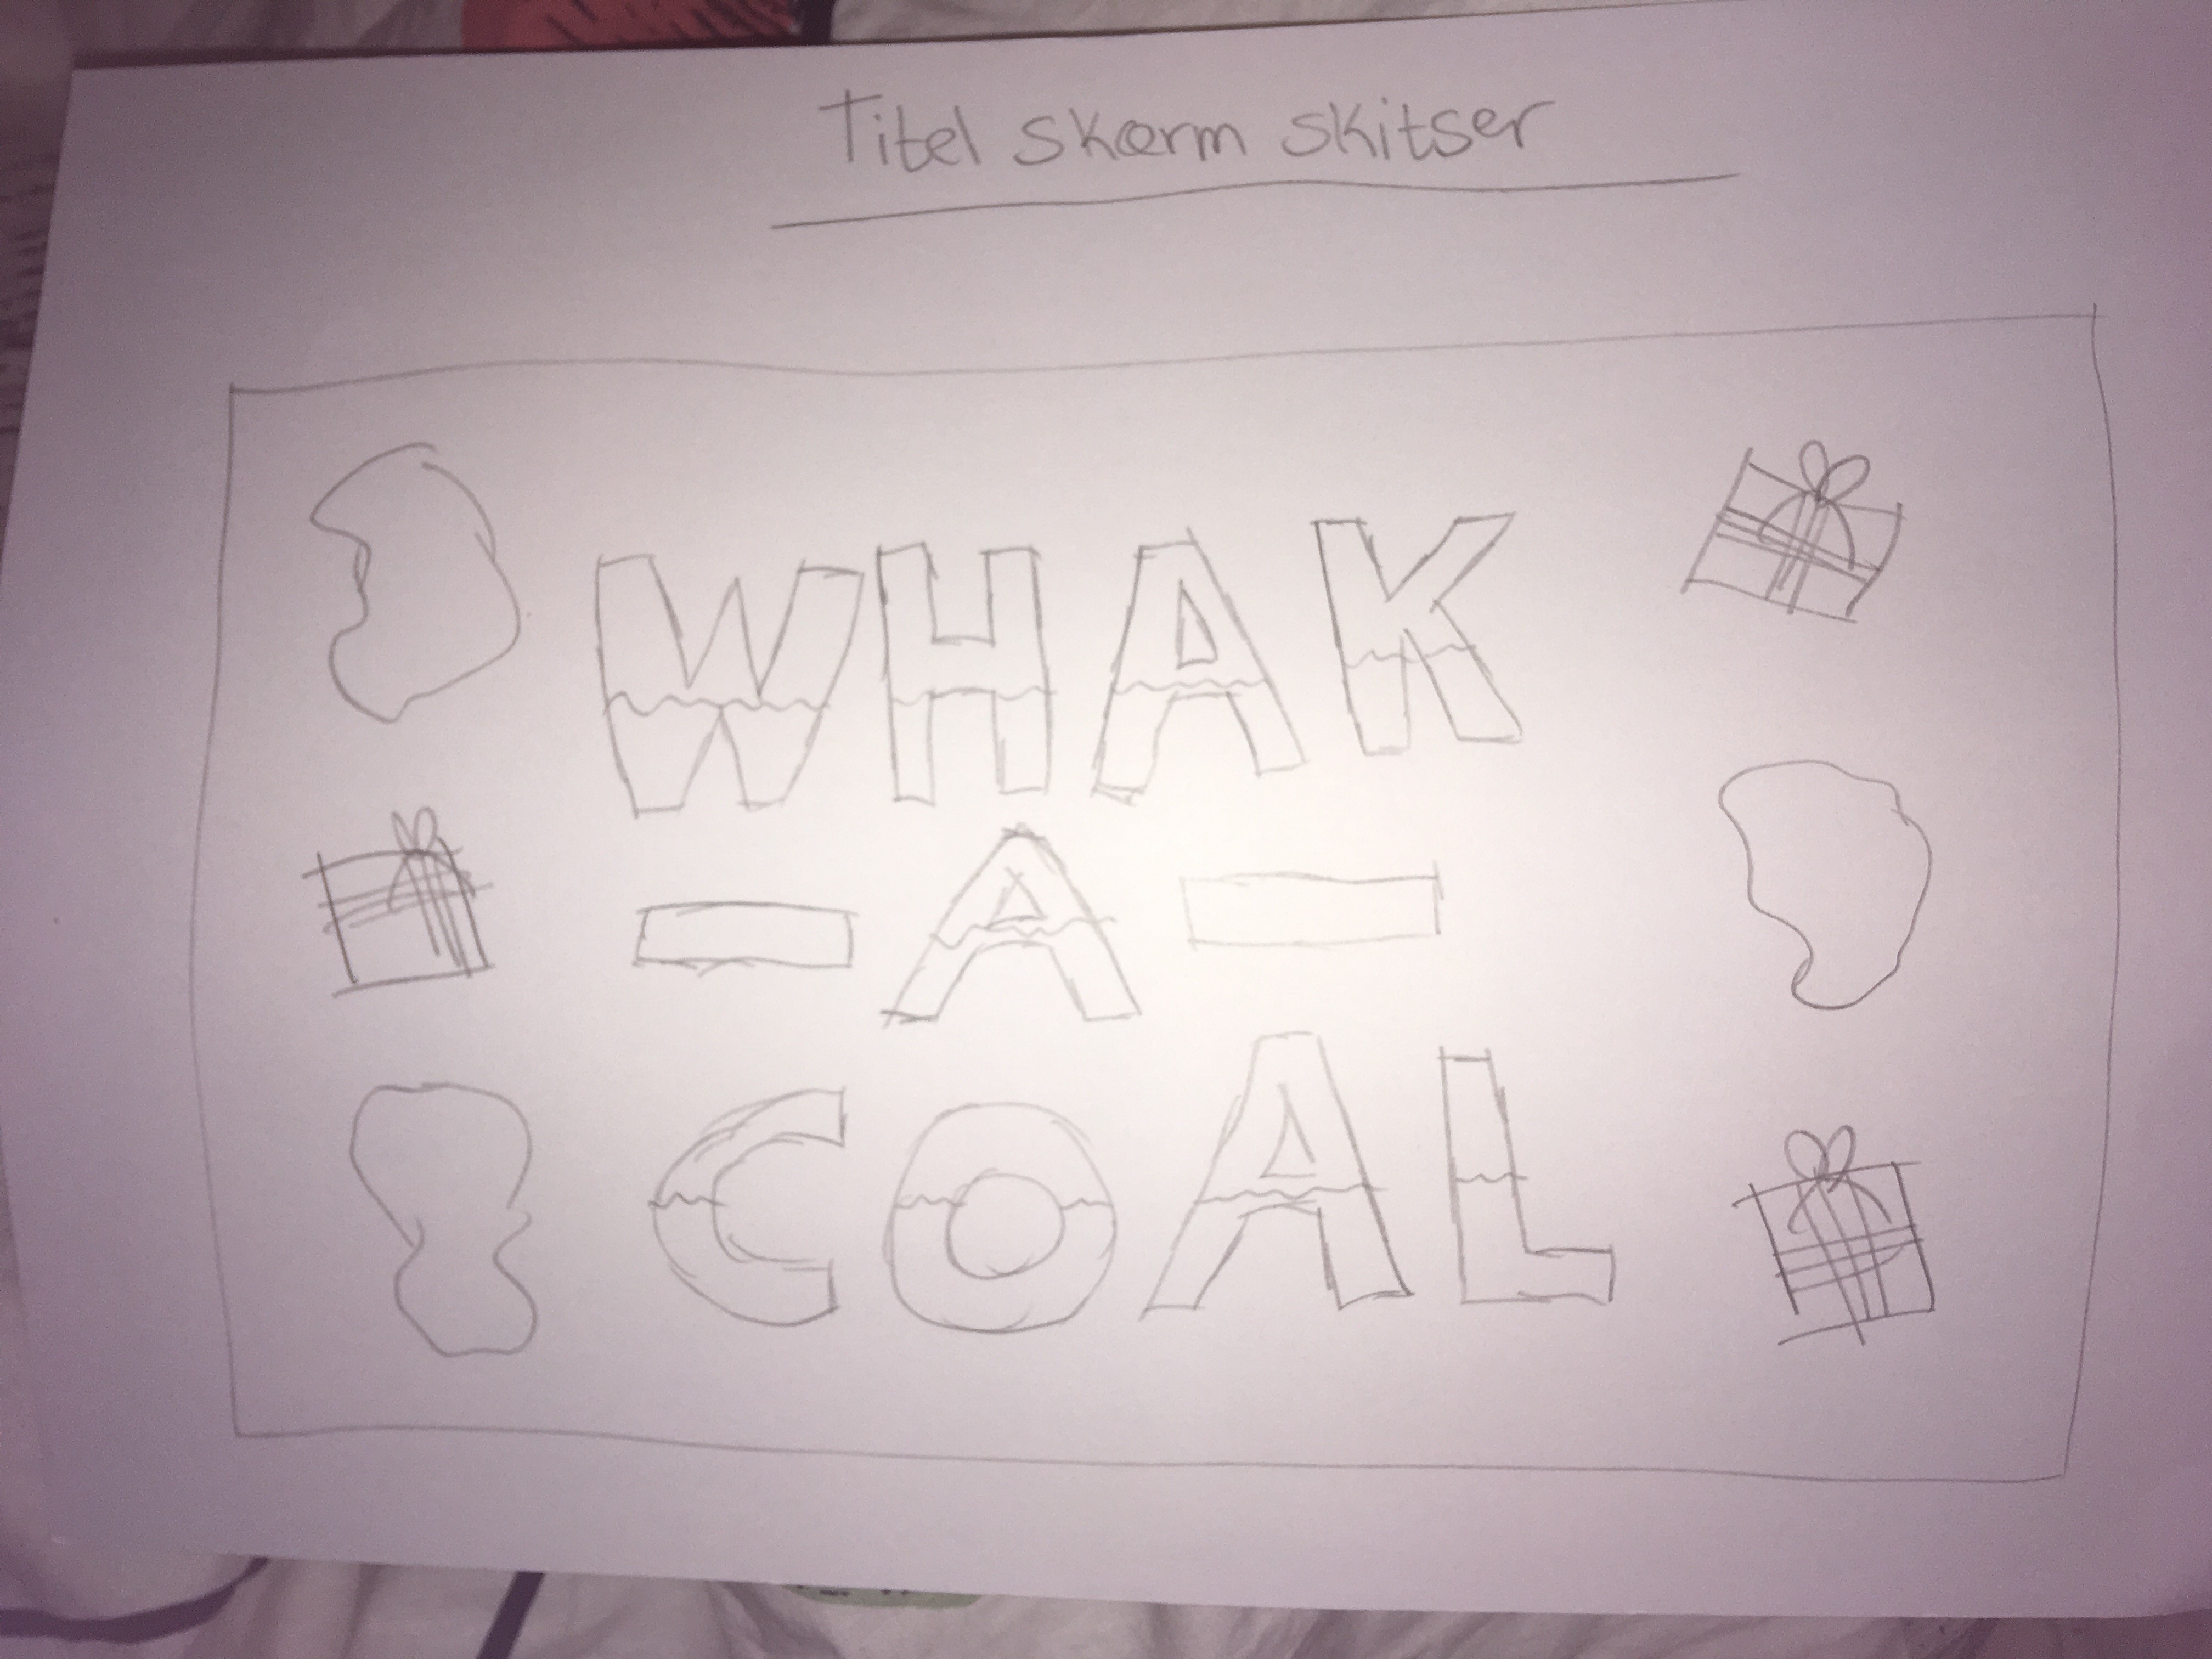 Titel skærm skitser
WHAK
- A -
COAL